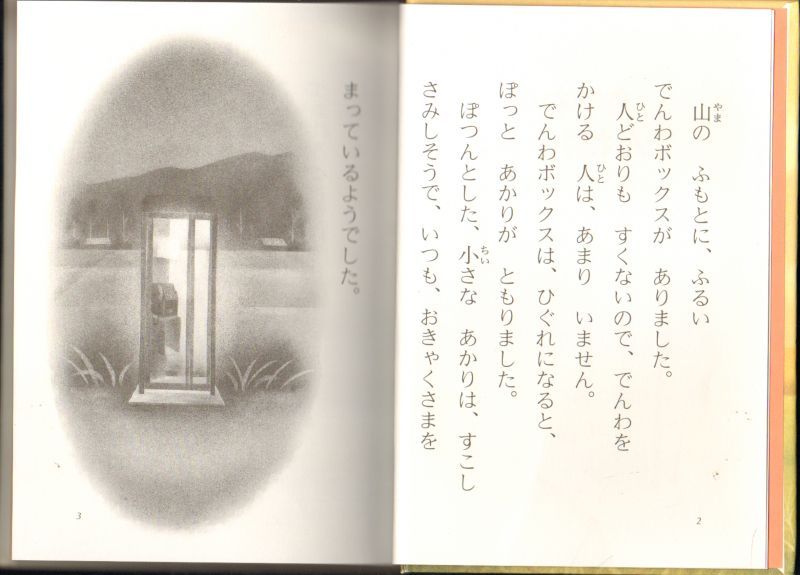 山の　ふもとに、ふるい
でんわボックスが　ありました。
人どおりも　すくないので、でんわを
かける　人は、あまり　いません。
でんわボックスは、ひぐれになると、
ぽっと　あかりが　ともりました。
ぽつんとした、小さな　あかりは、すこし
さみしそうで、いつも、おきゃくさまを
2
まっているようでした。
3